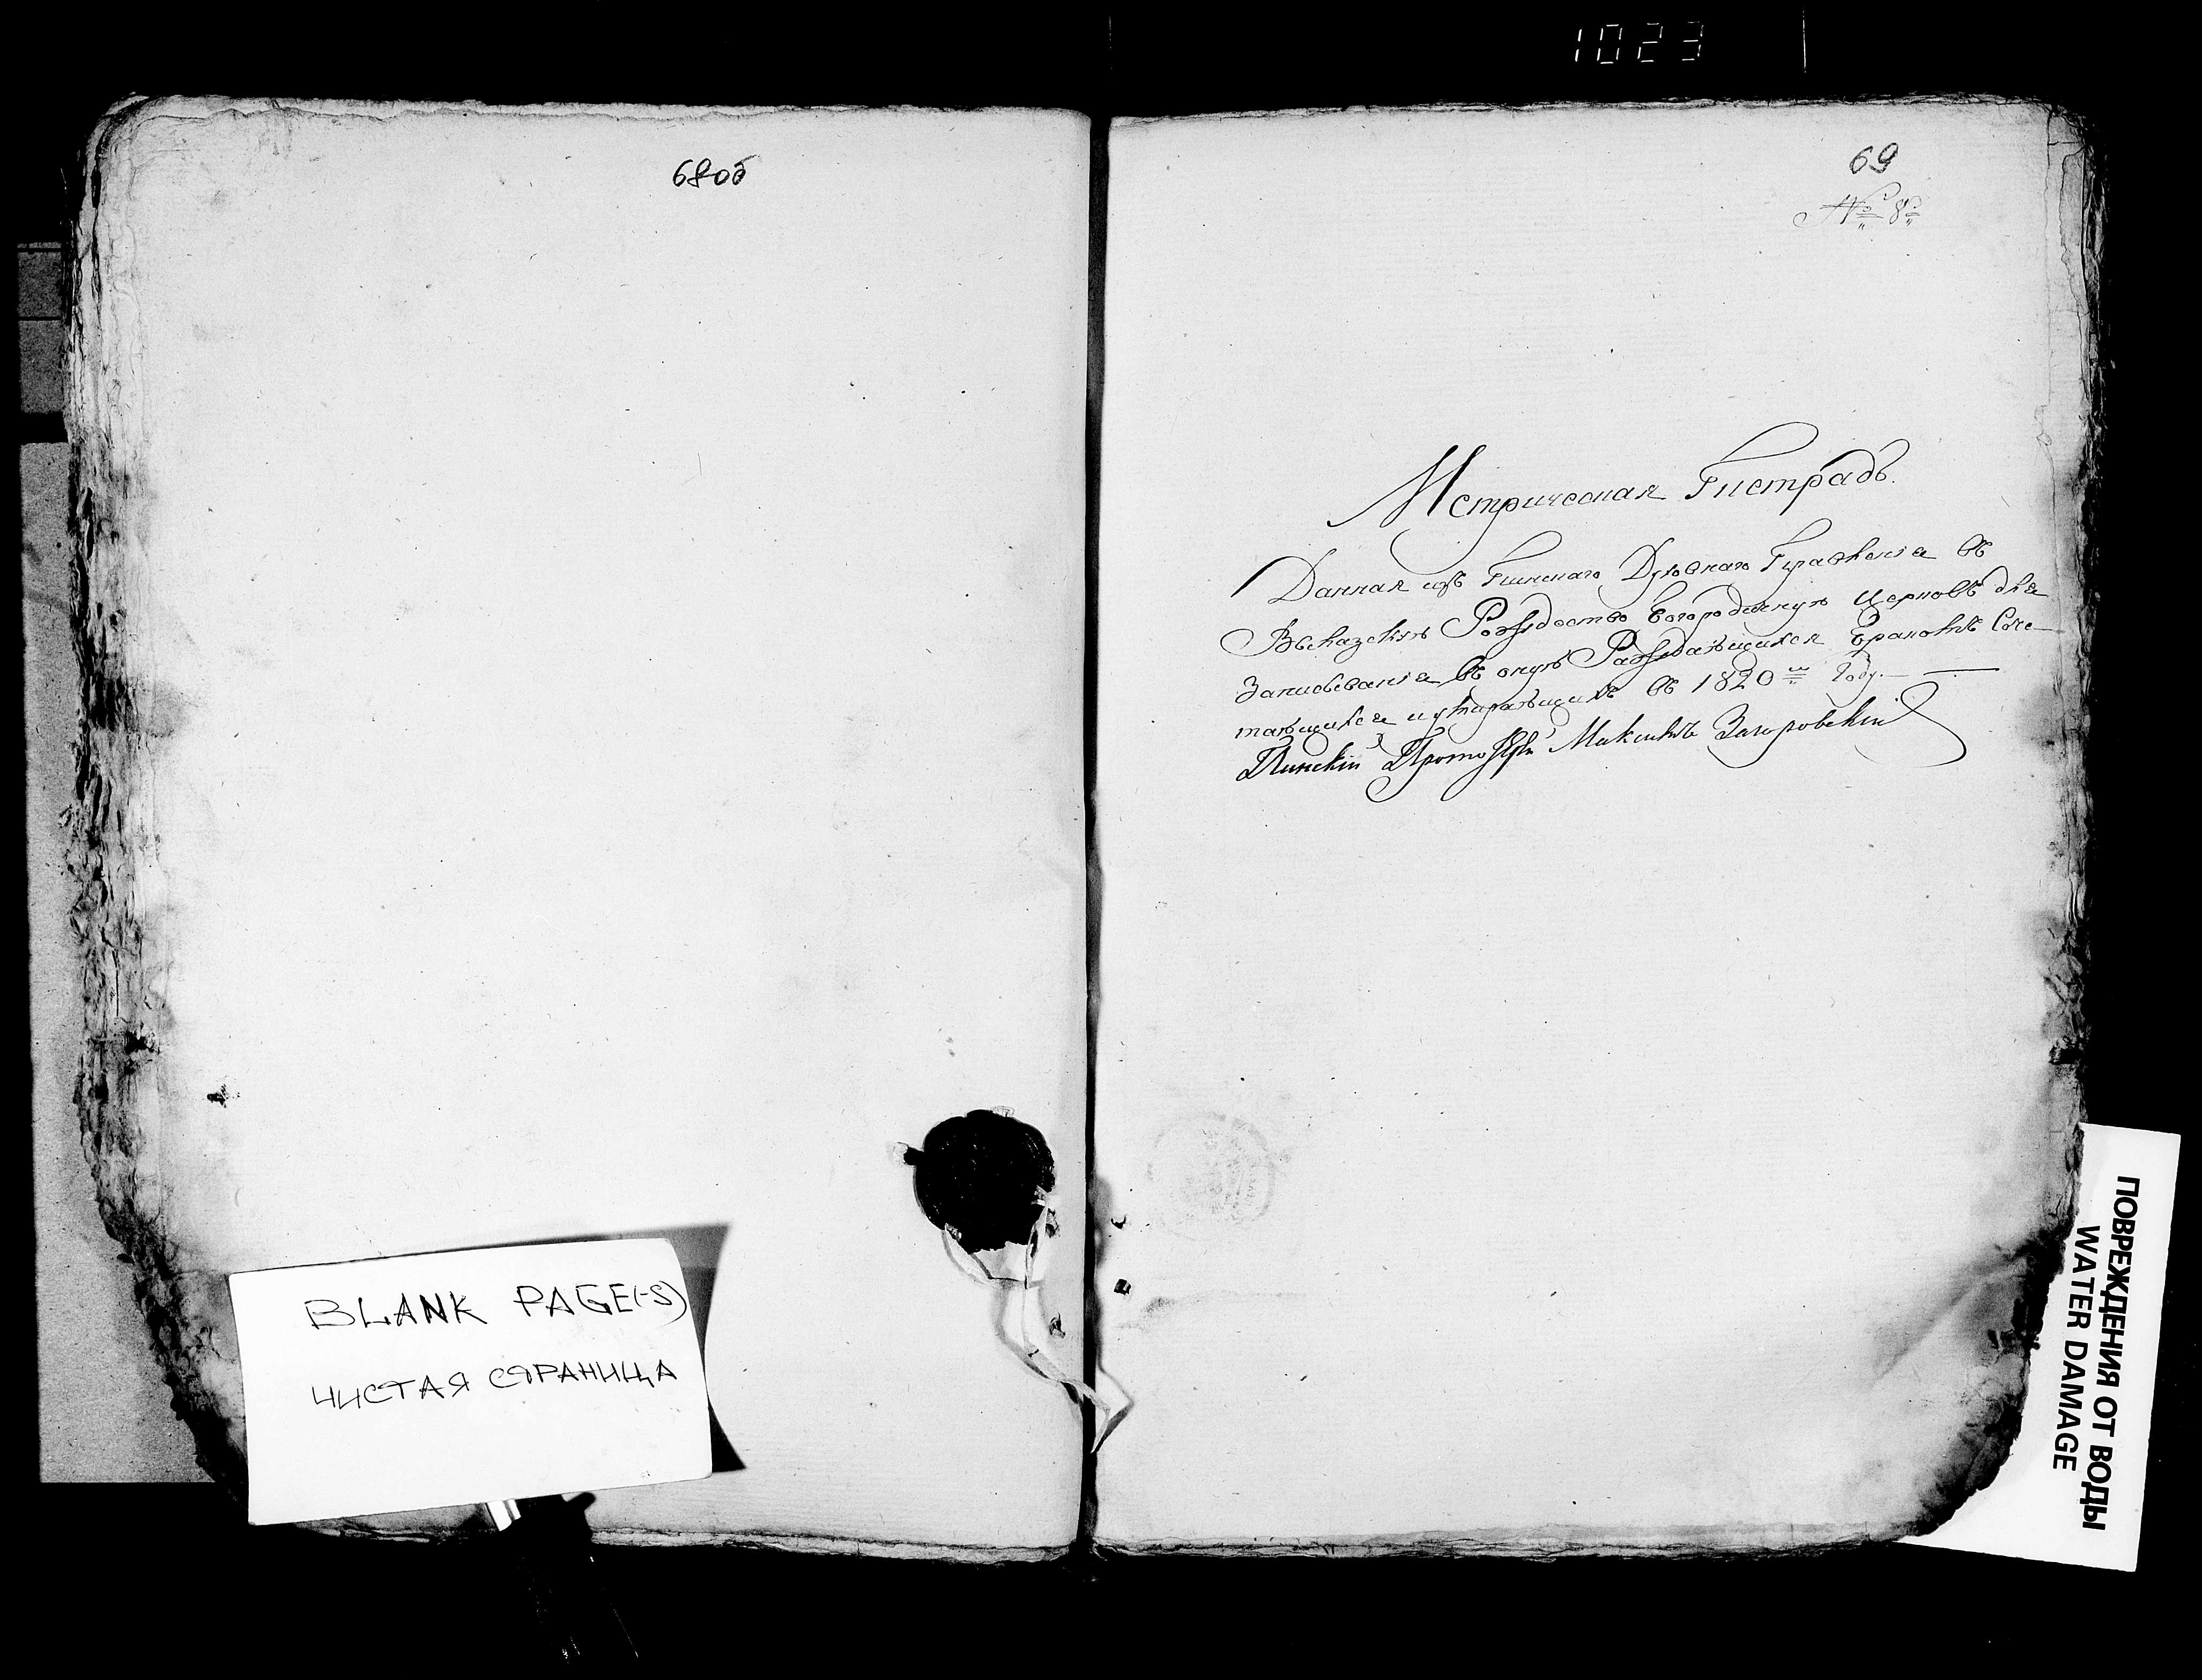 1023
68об
69
№ 8
Метрическая Тетрадь.
Данная изъ Пинскаго Духовнаго Правленія въ
Рождество Богородичную Церковь для
Записованія въ оную Раждавшихся Бракомъ Соче-
тавшихся и умиравшихъ въ 1820 м Году.
Пинскій Максимъ
BLANK PAGE(-S)
ЧИСТАЯ СТРАНИЦА
ПОВРЕЖДЕНИЯ ОТ ВОДЫ
WATER DAMAGE